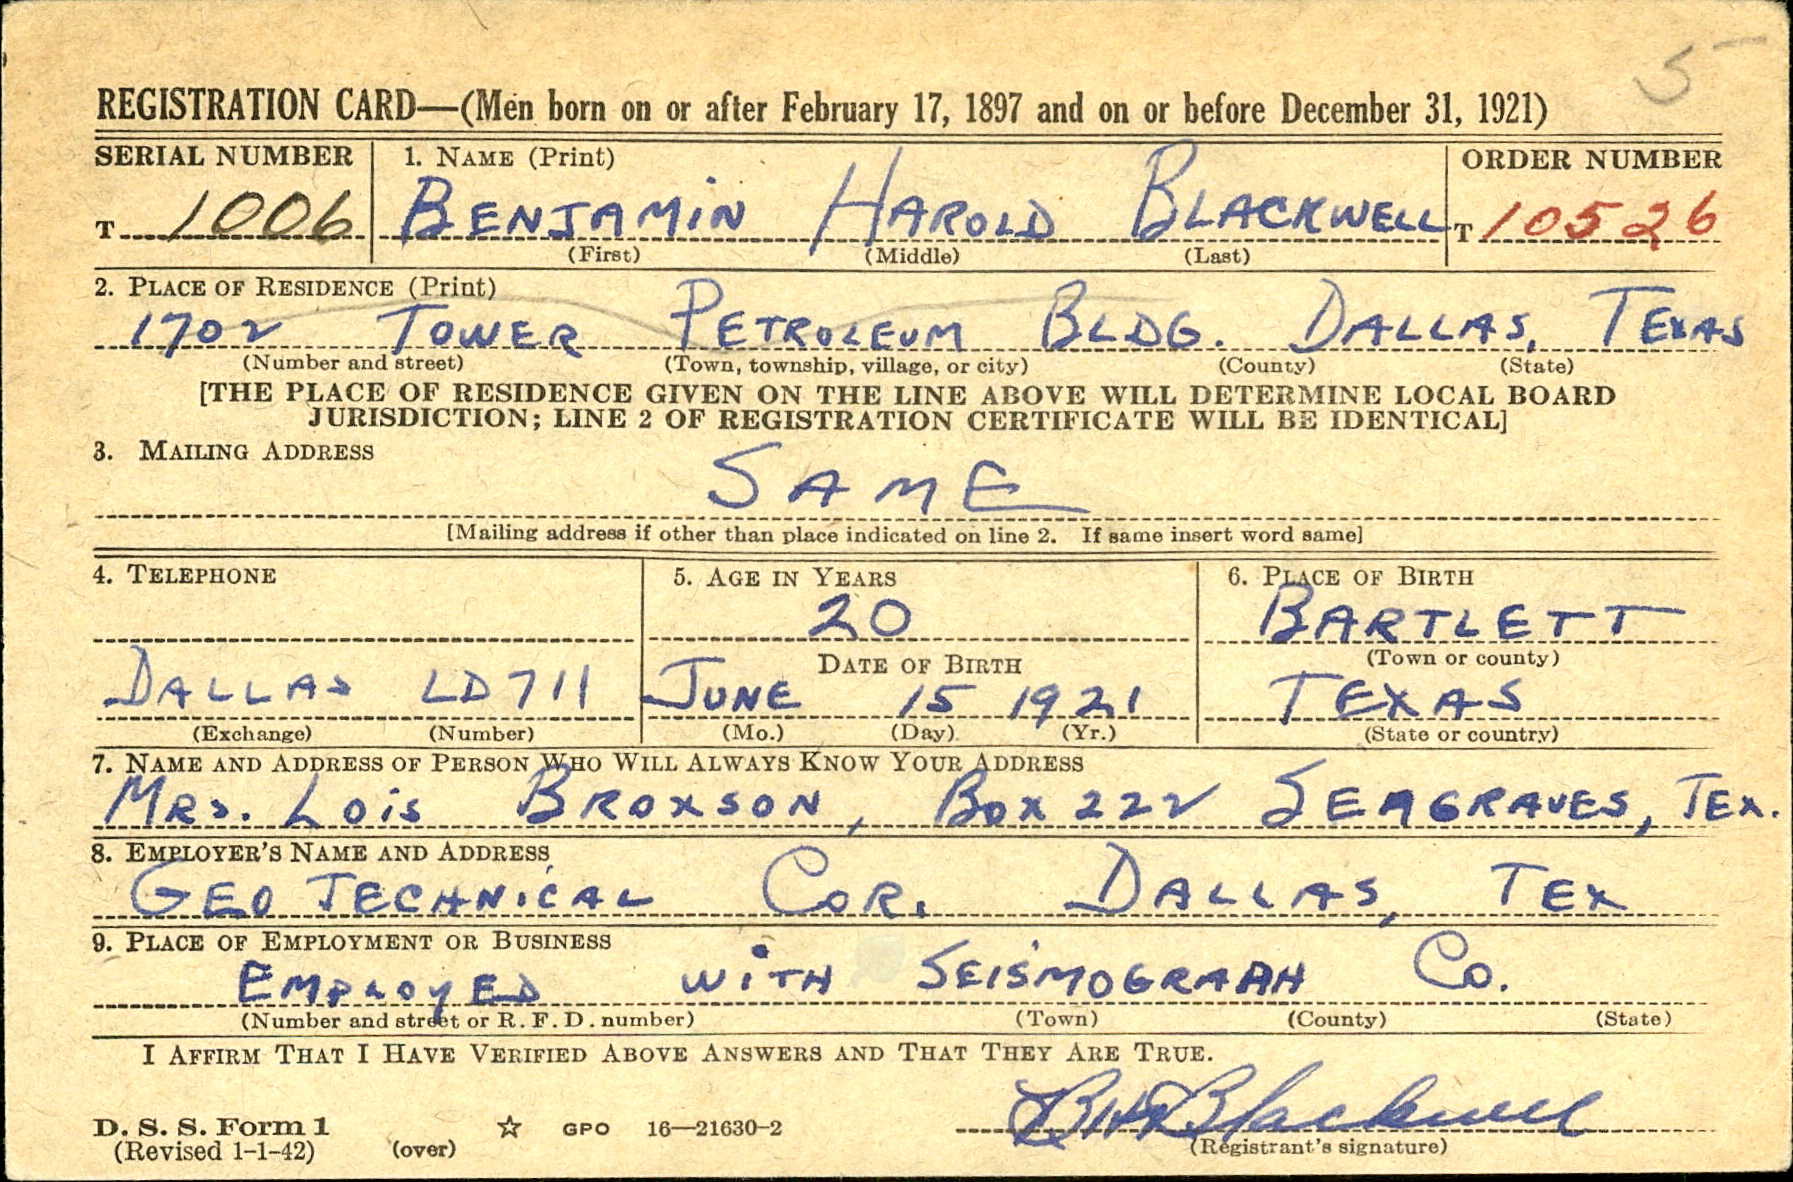 5-
REGISTRATION CARD—(Men born on or after February 17, 1897 and on or before December 31, 1921)
SERIAL NUMBER 1. NAME (Print) ORDER NUMBER
T 1006 BENJAMIN HAROLD BLACKWELL T 10526
(First) (Middle) (Last)
2. PLACE OF RESIDENCE (Print)
1702 TOWER PETROLEUM BLDG. DALLAS, TEXAS
(Number and street) (Town, township, village, or city) (County) (State)
[THE PLACE OF RESIDENCE GIVEN ON THE LINE ABOVE WILL DETERMINE LOCAL BOARD
JURISDICTION; LINE 2 OF REGISTRATION CERTIFICATE WILL BE IDENTICAL]
3. MAILING ADDRESS
SAME
[Mailing address if other than place indicated on line 2. If same insert word same]
4. TELEPHONE 5. AGE IN YEARS 6. PLACE OF BIRTH
20 BARTLETT
DATE OF BIRTH (Town or county)
DALLAS LD 711 JUNE 15 1921 TEXAS
(Exchange) (Number) (Mo.) (Day) (Yr.) (State or country)
7. NAME AND ADDRESS OF PERSON WHO WILL ALWAYS KNOW YOUR ADDRESS
MRS. LOIS BROXSON, BOX 222 SEAGRAVES, TEX.
8. EMPLOYER'S NAME AND ADDRESS
GEO TECHNICAL COR. DALLAS, TEX
9. PLACE OF EMPLOYMENT OR BUSINESS
EMPLOYED WITH SEISMOGRAPH CO.
(Number and street or R. F. D. number) (Town) (County) (State)
I AFFIRM THAT I HAVE VERIFIED ABOVE ANSWERS AND THAT THEY ARE TRUE.
BH Blackwell
D. S. S. Form 1 ☆ GPO 16—21630-2
(Revised 1-1-42) (over) (Registrant's signature)